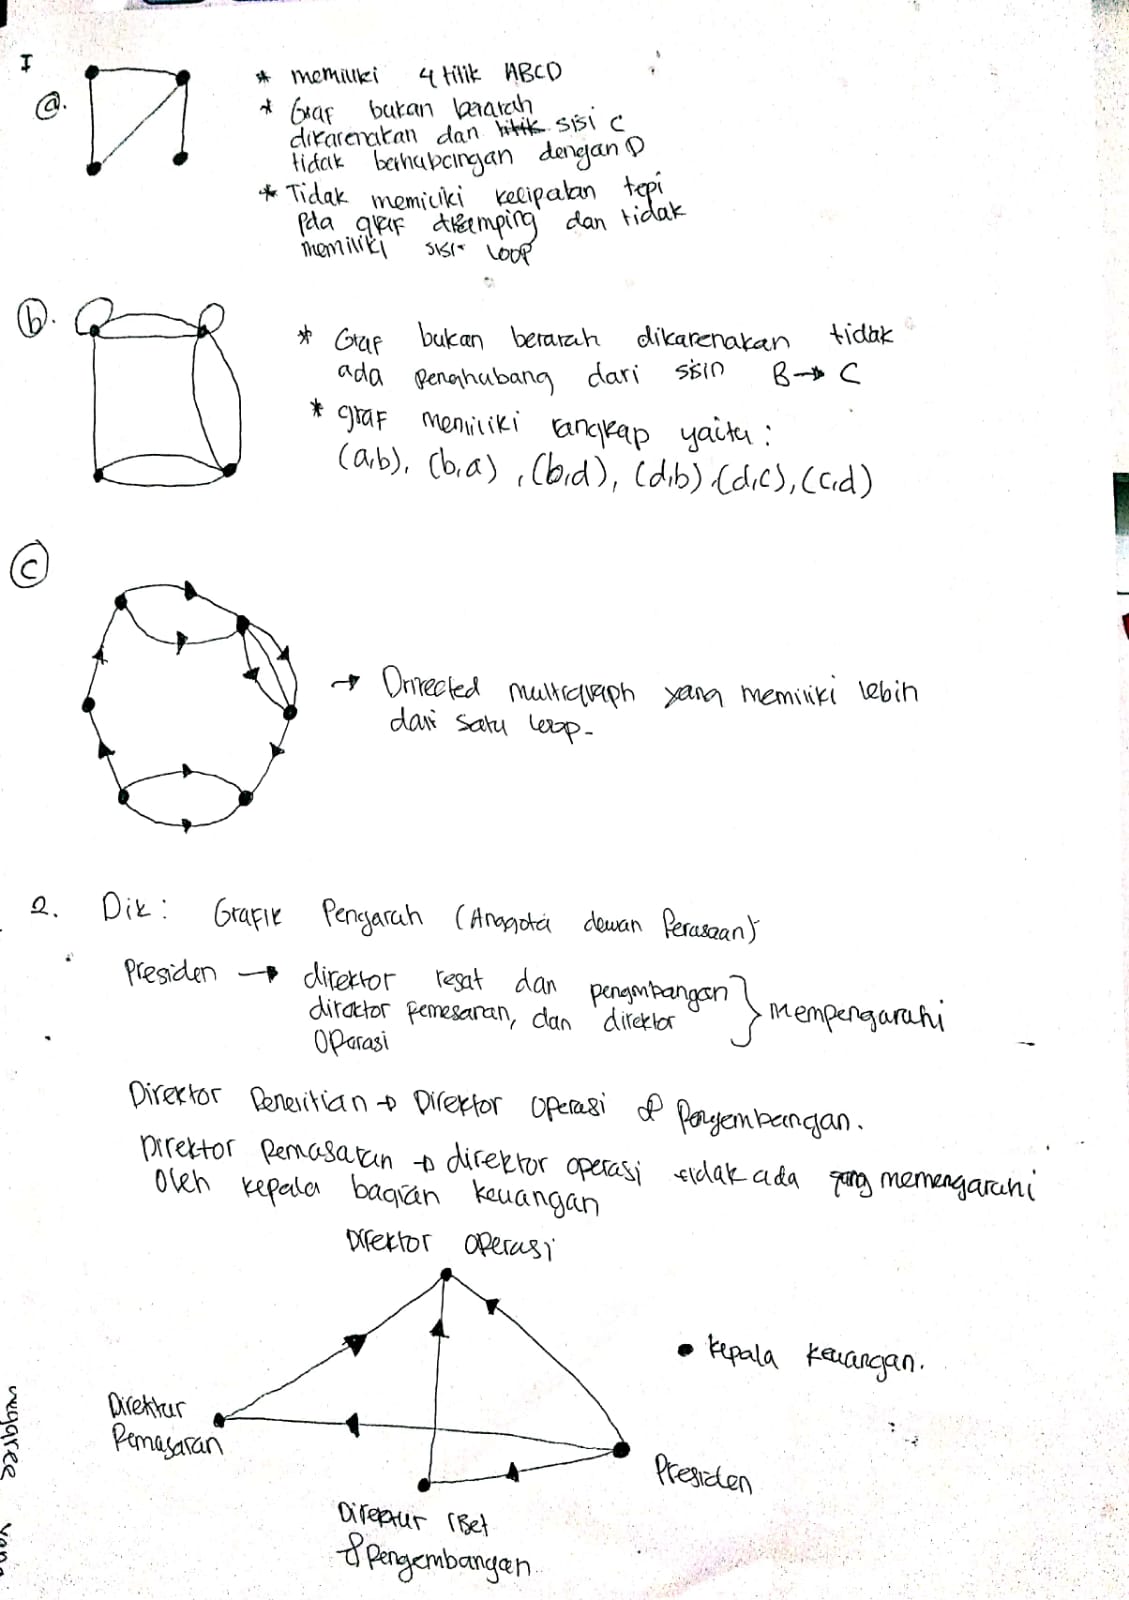 I
a.
* memiliki 4 titik ABCD
* Graf bukan berarah
dikarenakan dan titik sisi C
tidak berhubungan dengan D
* Tidak memiliki kelipatan tepi
pda graf disamping dan tidak
memiliki sisi loop
b.
* Graf bukan berarah dikarenakan tidak
ada penghubang dari sisin B → C
* graf memiliki rangkap yaitu :
(a,b), (b,a) , (b,d), (d,b) , (d,c), (c,d)
c
→ Dirrected multigraph yang memiliki lebih
dari satu loop-
2. Dik : Grafik Pengarah (Anggota dewan Perusaan)
Presiden → direktor resat dan pengmbangan
diraktor pemesaran, dan direktor } Mempengarahi
Oparasi
Direktor Penelitian → Direktor operasi & Pengembangan.
Direktor Pemasaran → direktor operasi tidak ada yang memengaruhi
oleh kepala bagian keuangan
Direktor operasi
• kepala keuangan.
Direktur
Pemasaran
Presiden
Direktur rset
& Pengembangan